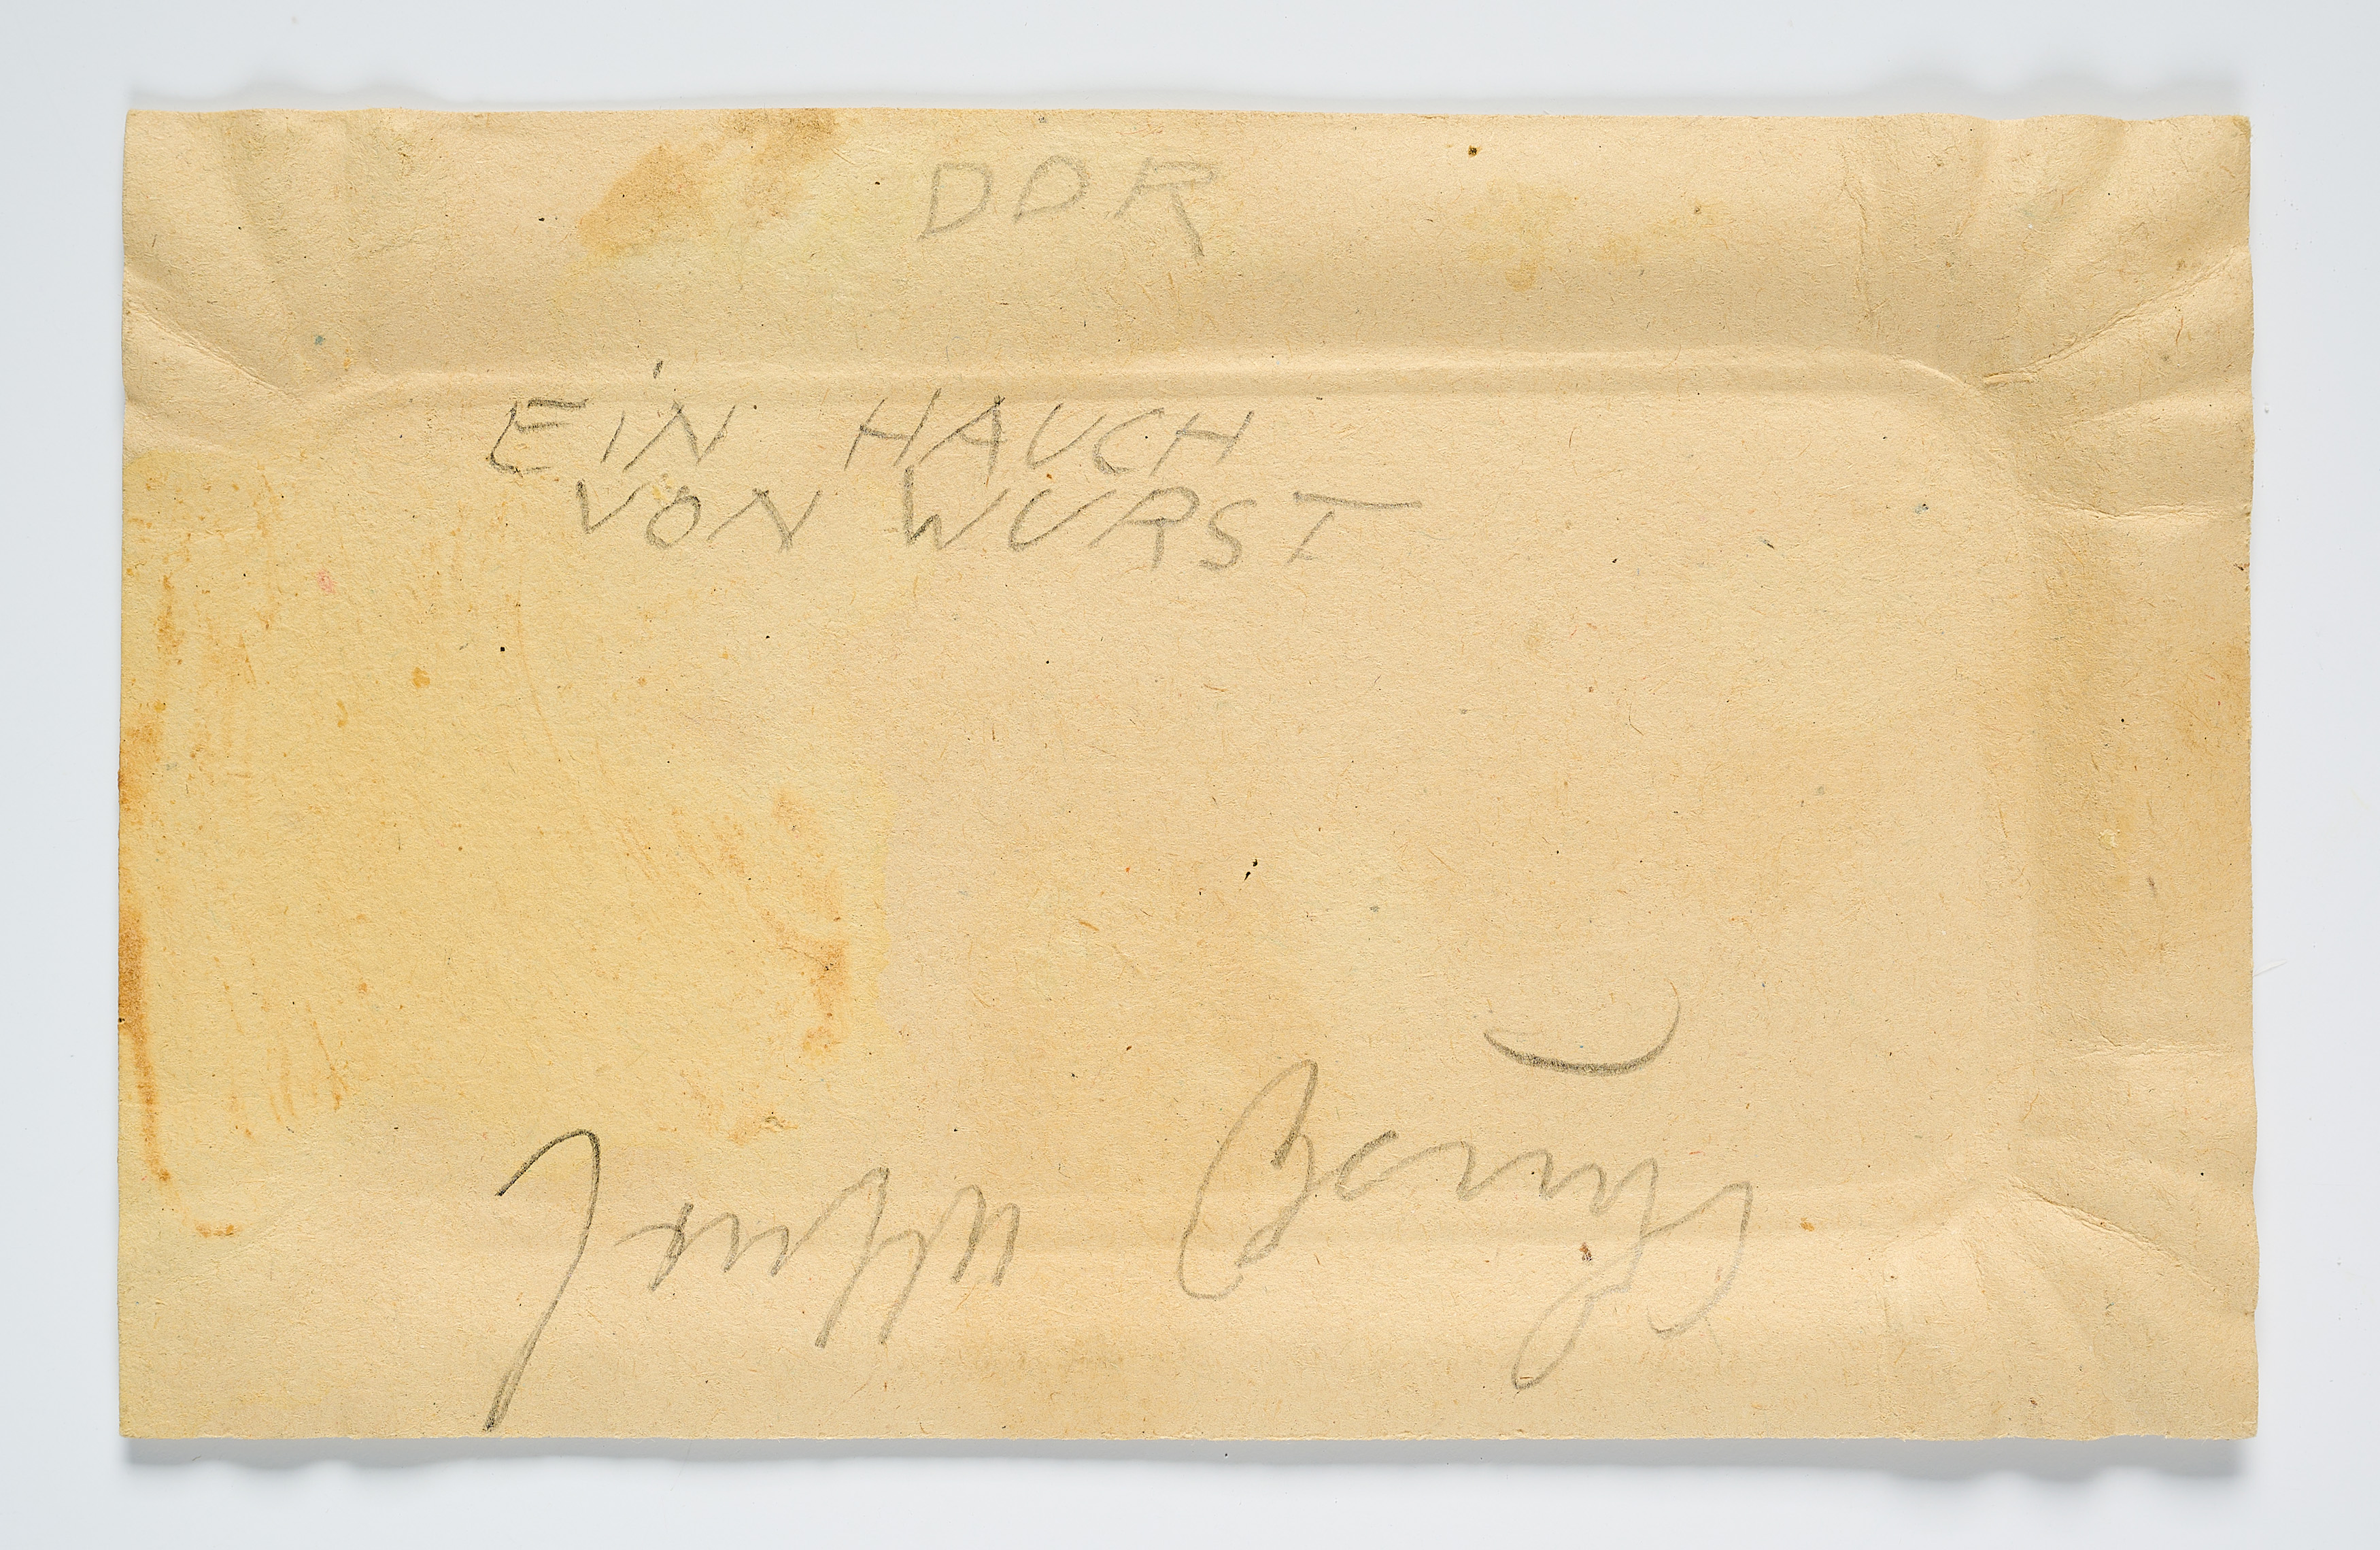 DDR
EiN HAUCH
VON WURST
Joseph Beuys